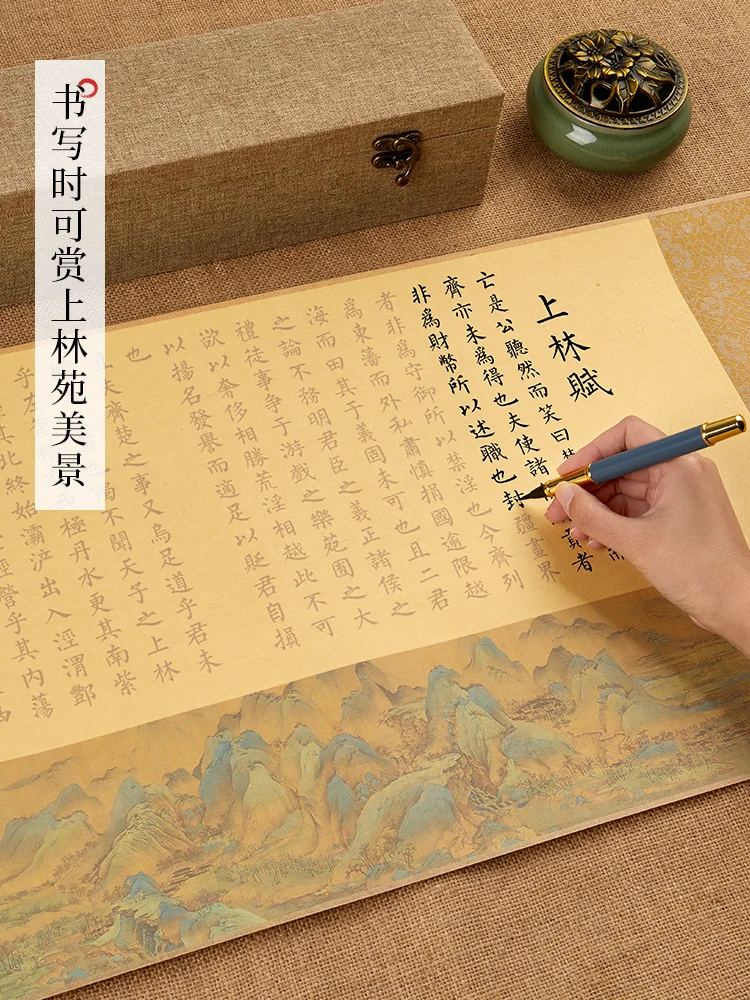 书写时可赏上林苑美景
上林賦
亡是公聽然而笑曰楚而
齊亦未爲得也夫使諸貢者
非爲財幣所以述職也封疆畫界
者非爲守御所以禁淫也今齊列
爲東藩而外私肅慎捐國逾限越
海而田其于義固未可也且二君
之論不務明君臣之義正諸侯之
禮徒事爭于游戲之樂苑囿之大
欲以奢侈相勝荒淫相越此不可
以揚名發譽而適足以貶君自損
也
且夫齊楚之事又烏足道乎君未
也獨不聞天子之上林
乎左西極丹水更其南紫
其北終始灞浐出入涇渭酆
經營乎其內蕩